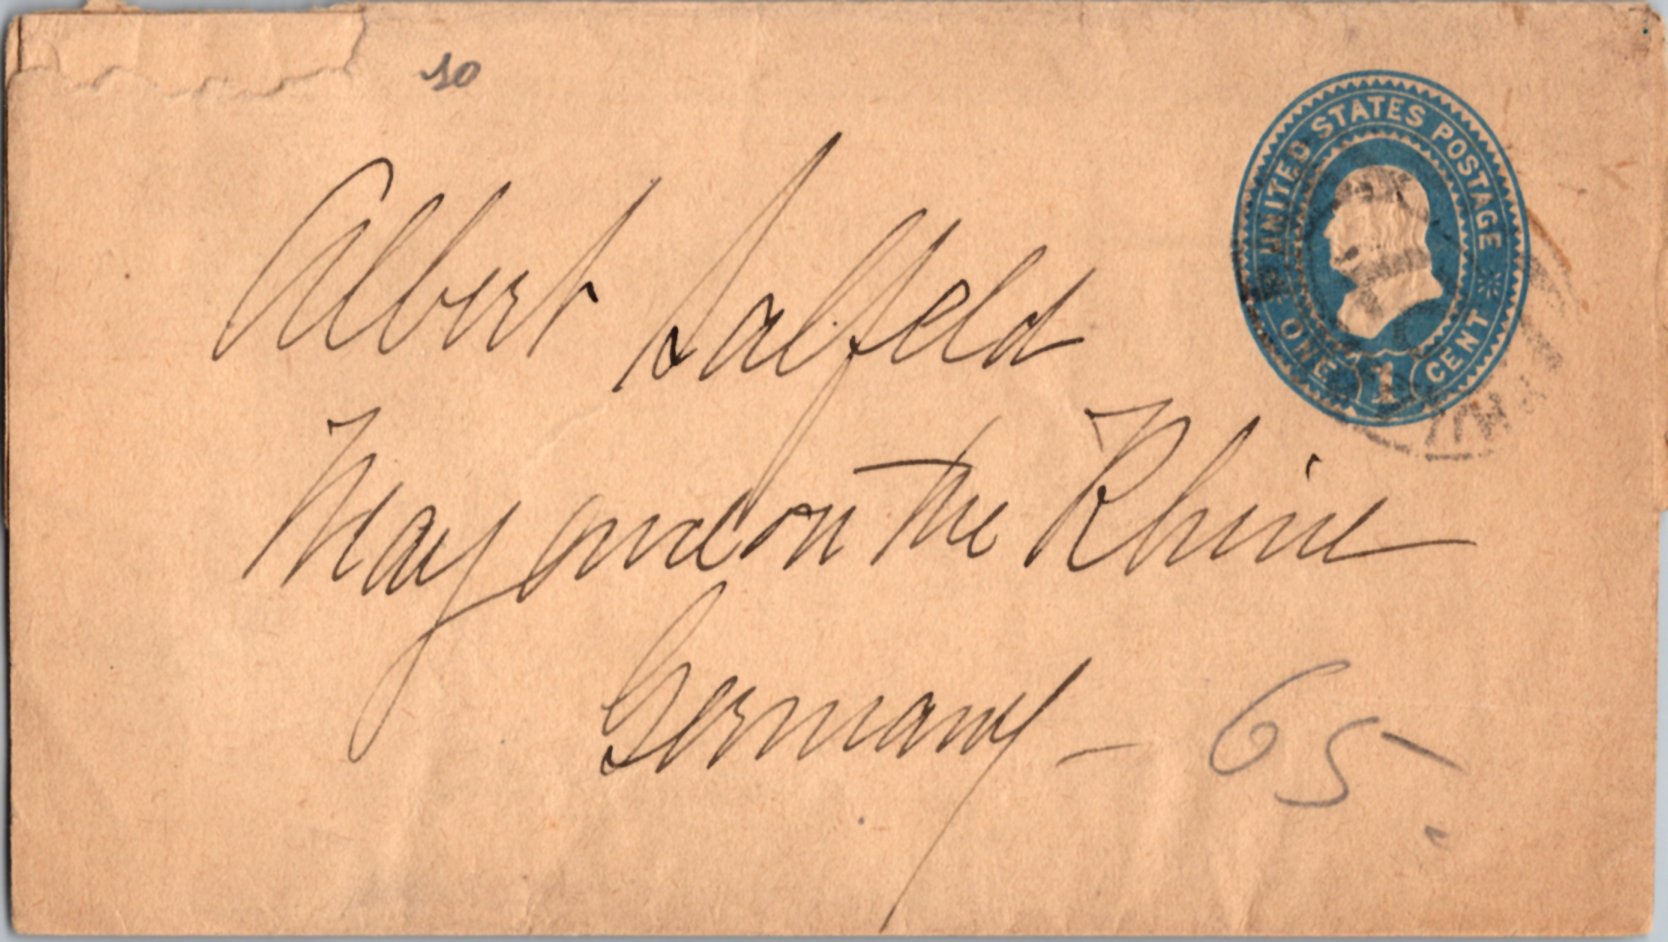 10
UNITED STATES POSTAGE
ONE 1 CENT
Albert Salfeld
Mayence on the Rhine
Germany –
65